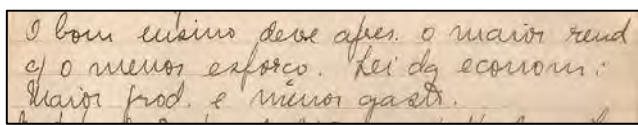 O bom ensino deve apres. o maior rend
c/ o menor esforço. Lei da econom:
Maior prod. e menor gast.